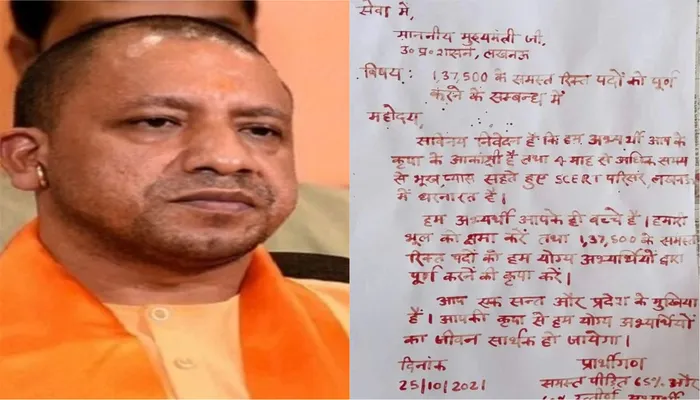 सेवा में,
माननीय मुख्यमंत्री जी,
उ० प्र० शासन, लखनऊ
विषय: 1,37,500 के समस्त रिक्त पदों को पूर्ण
करने के सम्बन्ध में
महोदय,
सविनय निवेदन है कि हम अभ्यर्थी आप के
कृपा के आकांक्षी हैं तथा 4 माह से अधिक समय
से भूख, प्यास सहते हुए SCERT परिसर, लखनऊ
में धरनारत है।
हम अभ्यर्थी आपके ही बच्चे हैं। हमारी
भूल को क्षमा करें तथा 1,37,500 के समस्त
रिक्त पदों को हम योग्य अभ्यर्थियों द्वारा
पूर्ण करने की कृपा करें।
आप एक सन्त और प्रदेश के मुखिया
हैं। आपकी कृपा से हम योग्य अभ्यर्थियों
का जीवन सार्थक हो जायेगा।
दिनांक प्रार्थीगण
25/10/2021 समस्त पीड़ित 65% और